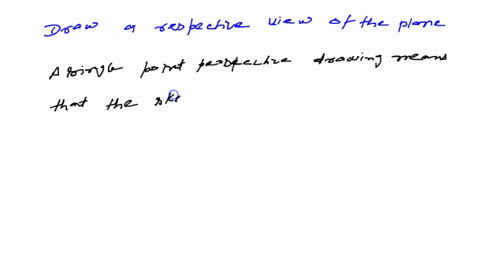 Draw a respective view of the plane
A single point perspective drawing means
that the ske